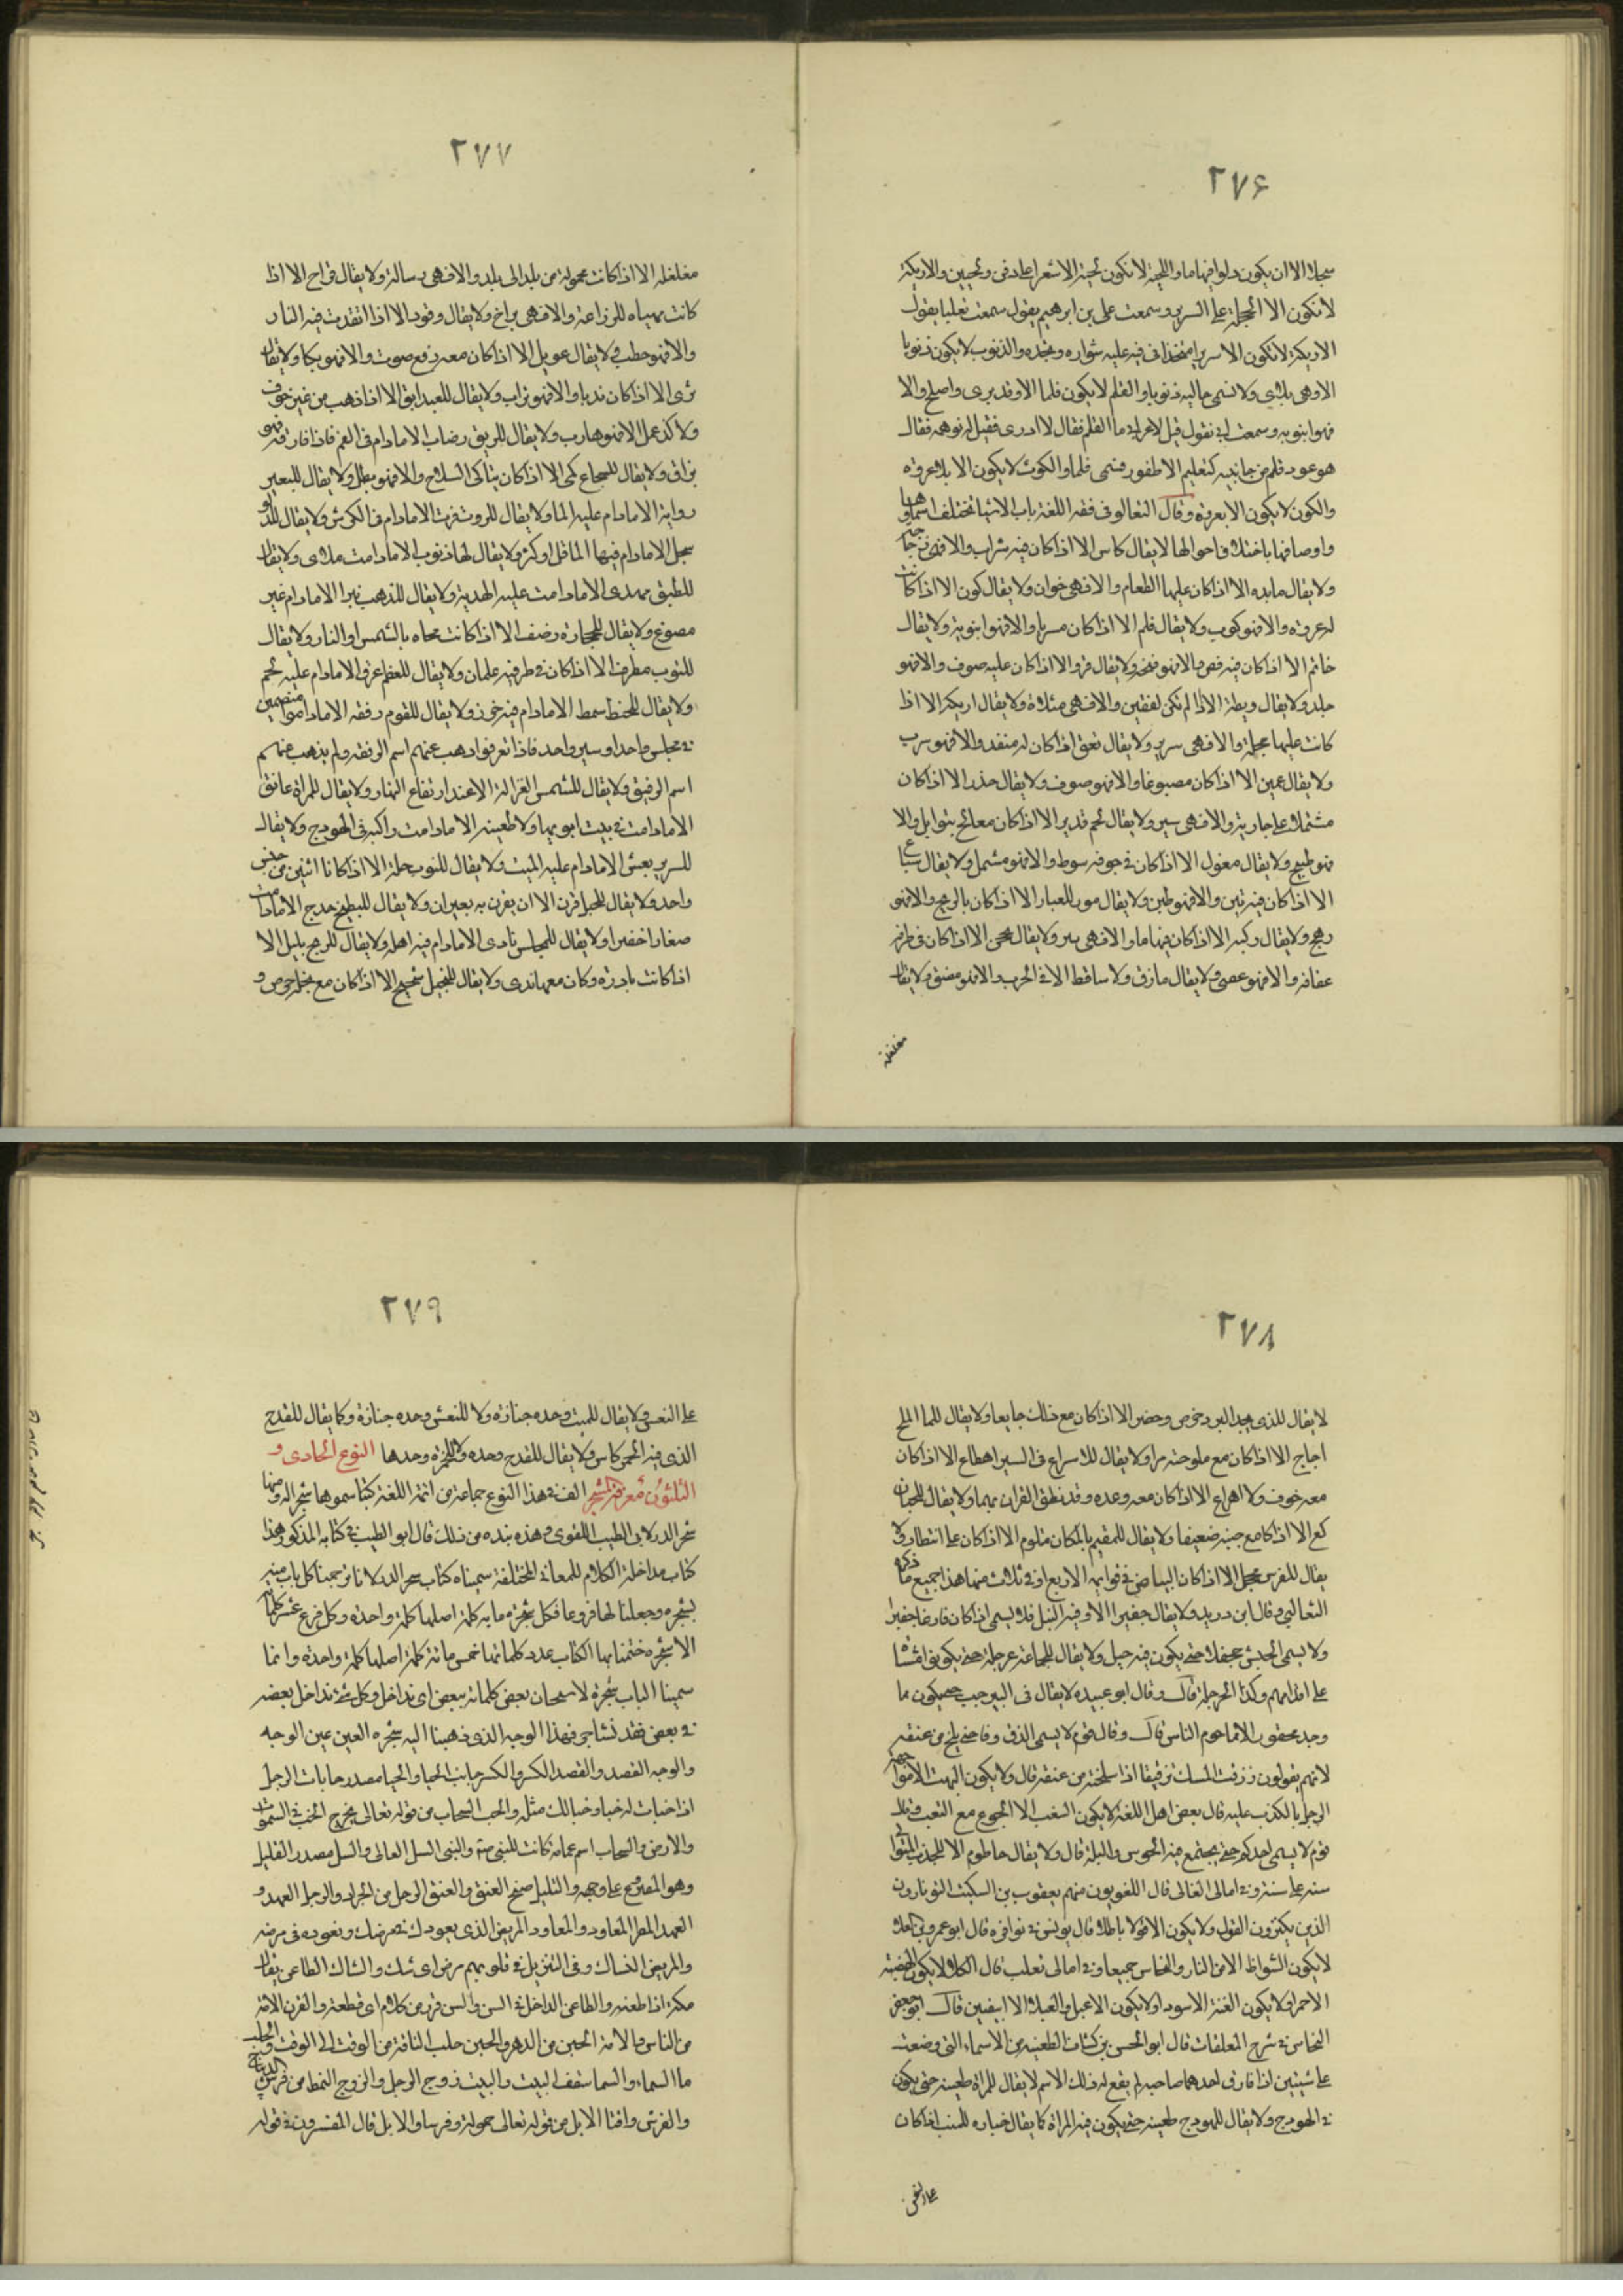 ٢٧۶
سجلا الا ان يكون دلوا فيها ماء واللحية لا تكون لحية الا شعرا على ذقن ولحيين والاريكة
لا تكون الا الحجلة على السرير وسمعت على بن ابرهيم يقول سمعت ثعلبا يقول
الاريكة لا تكون الا سريرا متخذا فى قبة عليه شواره ونجده والذنوب لا يكون ذنوبا
الا وهى ملئى ولا تسمى خالية ذنوبا والقلم لا يكون قلما الا وقد برى واصلح والا
فهو انبوبه وسمعت ابى يقول قيل لاعرابى ما القلم فقال لا ادرى فقيل له توهمه فقال
هو عود قلم من جانبيه كتقليم الاظفور فسمى قلما والكوب لا يكون الا بلا عروة
والكوز لا يكون الا بعروة وقال الثعالبى فى فقه اللغة باب الاشيا تختلف اسماؤها
واوصافها باختلاف احوالها لا يقال كاس الا اذا كان فيه شراب والا فهى زجاجة
ولا يقال مايده الا اذا كان عليها الطعام والا فهى خوان ولا يقال كوز الا اذا كانت
له عروة والا فهو كوب ولا يقال قلم الا اذا كان مبريا والا فهو انبوبة ولا يقال
خاتم الا اذا كان فيه فص والا فهو فتخه ولا يقال فرو الا اذا كان عليه صوف والا فهو
جلد ولا يقال ريطة الا اذا لم تكن لفقين والا فهى ملاة ولا يقال اريكة الا اذا
كانت عليها حجلة والا فهى سرير ولا يقال نفق اذا كان له منفذ والا فهو سرب
ولا يقال عهن الا اذا كان مصبوغا والا فهو صوف ولا يقال خدر الا اذا كان
مشتملا على جارية والا فهى ستر ولا يقال لحم قدير الا اذا كان معالج بتوابل والا
فهو طبيخ ولا يقال مغول الا اذا كان فى جوفه سوط والا فهو مشمل ولا يقال سياع
الا اذا كان فيه تبن والا فهو طين ولا يقال مور للغبار الا اذا كان بالريح والا فهو
رهج ولا يقال ركية الا اذا كان فيها ماء والا فهى بير ولا يقال محجن الا اذا كان فى طرفه
عقافة والا فهو عصى ولا يقال مازق ولا ساقط الا فى الحرب والا فهو مضيق ولا يقال
مغلغلة
٢٧٧
مغلغلة الا اذا كانت محمولة من بلد الى بلد والا فهى رسالة ولا يقال قراح الا اذا
كانت مهياه للزراعة والا فهى براح ولا يقال وقود الا اذا اتقدت فيه النار
والا فهو حطب ولا يقال عويل الا اذا كان معه رفع صوت والا فهو بكا ولا يقال
ثرى الا اذا كان نديا والا فهو تراب ولا يقال للعبد ابق الا اذا ذهب من غير خوف
ولا كد عمل والا فهو هارب ولا يقال للريق رضاب الا مادام فى الفم فاذا فارقه فهو
بزاق ولا يقال للشجاع كمى الا اذا كان شاكى السلاح والا فهو بطل ولا يقال للبعير
رواية الا مادام عليه الماء ولا يقال للروث فرث الا مادام فى الكرش ولا يقال للدلو
سجل الا مادام فيها الماء قل او كثر ولا يقال لها ذنوب الا مادامت ملاى ولا يقال
للطبق مهدى الا مادامت عليه الهدية ولا يقال للذهب تبرا الا مادام غير
مصوغ ولا يقال للحجارة رضف الا اذا كانت محماه بالشمس او النار ولا يقال
للثوب مطرف الا اذا كان فى طرفيه علمان ولا يقال للعظم عرق الا مادام عليه لحم
ولا يقال للخيط سمط الا مادام فيه خرز ولا يقال للقوم رفقه الا ماداموا منضمين
فى مجلس واحد او سير واحد فاذا تفرقوا ذهب عنهم اسم الرفقه ولم يذهب عنهم
اسم الرفيق ولا يقال للشمس الغزالة الا عند ارتفاع النهار ولا يقال للمراة عاتق
الا مادامت فى بيت ابويها ولا ظعينه الا مادامت راكبه فى الهودج ولا يقال
للسرير نعش الا مادام عليه الميت ولا يقال للثوب حلة الا اذا كانا اثنين من جنس
واحد ولا يقال للحبل قرن الا ان يقرن به بعيران ولا يقال للبطيخ حدج الا مادامت
صغارا خضرا ولا يقال للمجلس نادى الا مادام فيه اهله ولا يقال للريح بليل الا
اذا كانت باردة وكان معها ندى ولا يقال للبخيل شحيح الا اذا كان مع بخله حرص و
٢٧٨
لا يقال للذى يجد البرد خرص وخصر الا اذا كان مع ذلك جايعا ولا يقال للماء الملح
اجاج الا اذا كان مع ملوحته مرا ولا يقال للاسراع فى السير اهطاع الا اذا كان
معه خوف ولا اهراع الا اذا كان معه رعده وقد نطق القران بهما ولا يقال للجبان
كع الا اذا كا مع جبنه ضعيفا ولا يقال للمقيم بالمكان متلوم الا اذا كان على انتظار ولا
يقال للفرس محجل الا اذا كان البياض فى قوايمه الاربع او فى ثلاث منها هذا جميع ما ذكره
الثعالبى وقال ابن دريد ولا يقال جفيرا الا وفيه النبل فلا يسمى اذا كان فارغا جفيرا
ولا يسمى الجيش جحفلا حتى يكون فيه خيل ولا يقال للجماعة عرجلة حتى يكونوا مشاة
على اقدامهم وكذا الحرجلة قال وقال ابو عبيده لا يقال فى البير جب حتى يكون مما
وجد محفورا لا مما حفره الناس قال وقال قوم لا يسمى الزق زقا حتى يسلخ من عنقه
لانهم يقولون زققت المسك تزقيقا اذا سلخته من عنقه قال ولا يكون البهت الا مواجهة
الرجل بالكذب عليه قال بعض اهل اللغة لا يكون السغب الا الجوع مع التعب وقال
قوم لا يسمى حتى يجتمع فيه قال ولا يقال حاطوم الا للجدب المتوالى
سنه على سنة وفى امالى القالى قال اللغويون منهم يعقوب بن السكيت الثرثارون
الذين يكثرون القول ولا يكون الا قولا باطلا قال يونس فى نوادره قال ابو عمرو بن العلا
لا يكون الشواظ الا من النار والنحاس جميعا وفى امالى ثعلب قال الكلابى لا يكون الهضبة
الا حمرا ولا يكون القنة الا سودا ولا يكون الاعبل والعبلا الا ابيضين قال ابو جعفر
النحاس فى شرح المعلقات قال ابو الحسن بن كيسان الظعينه من الاسماء التى وضعت
على شيئين اذا فارق احدهما صاحبه لم يقع له ذلك الاسم لا يقال للمراة ظعينه حتى يكون
فى الهودج ولا يقال للهودج ظعينه حتى يكون فيه المراة كما يقال جنازه للميت اذا كان
على النعش
٢٧٩
على النعش ولا يقال للميت وحده جنازة ولا للنعش وحده جنازة وكما يقال للقدح
الذى فيه الخمر كاس ولا يقال للقدح وحده ولا للخمرة وحدها النوع الحادى و
الثلثون معرفة المشجر الف فى هذا النوع جماعة من ائمة اللغة كتبا سموها شجر الدر ومنها
شجر الدر لابى الطيب اللغوى وهذه نبذه من ذلك قال ابو الطيب فى كتابه المذكور هذا
كتاب مداخلة الكلام للمعانى المختلفة سميناه كتاب شجر الدر لانا ترجمنا كل باب منه
بشجره وجعلنا لها فروعا فكل شجرة مايه كلمة اصلها كلمة واحدة وكل فرع عشر كلمات
الا شجرة ختمنا بها الكتاب عدد كلماتها خمس مائة كلمة اصلها كلمة واحدة وانما
سمينا الباب شجرة لاشتجار بعض كلماته ببعض اى تداخل وكل شئ تداخل بعضه
فى بعض فقد تشاجر فهذا الوجه الذى ذهبنا اليه شجره العين عين الوجه
والوجه القصد والقصد الكسر والكسر جانب الخبا والخبا مصدر خابات الرجل
اذا خبات له خبا وخبا لك مثله والخب السحاب من قوله تعالى يخرج الخب فى السموات
والارض والسحاب اسم عمامة كانت للنبى ص والنبى التل العالى والتل مصدر التليل
وهو المصروع على وجهه والتليل صفح العنق والعنق الرجل من الجراد والرجل العهد و
العهد المطر المعاود والمعاود المريض الذى يعودك فى مرضك وتعوده فى مرضه
والمريض الشاك وفى التنزيل فى قلوبهم مرض اى شك والشاك الطاعن يقال
شكه اذا طعنه والطاعن الداخل فى السن والسن قرن من كلاء اى قطعة والقرن الامة
من الناس والامة الحين من الدهر والحين حلب الناقة من الوقت الى الوقت والحلب
ماء السماء والسما سقف البيت والبيت زوج الرجل والزوج النمط من فرش الديباج
والفرش افتاء الابل من قوله تعالى حمولة وفرشا والابل قال المفسرون فى قوله